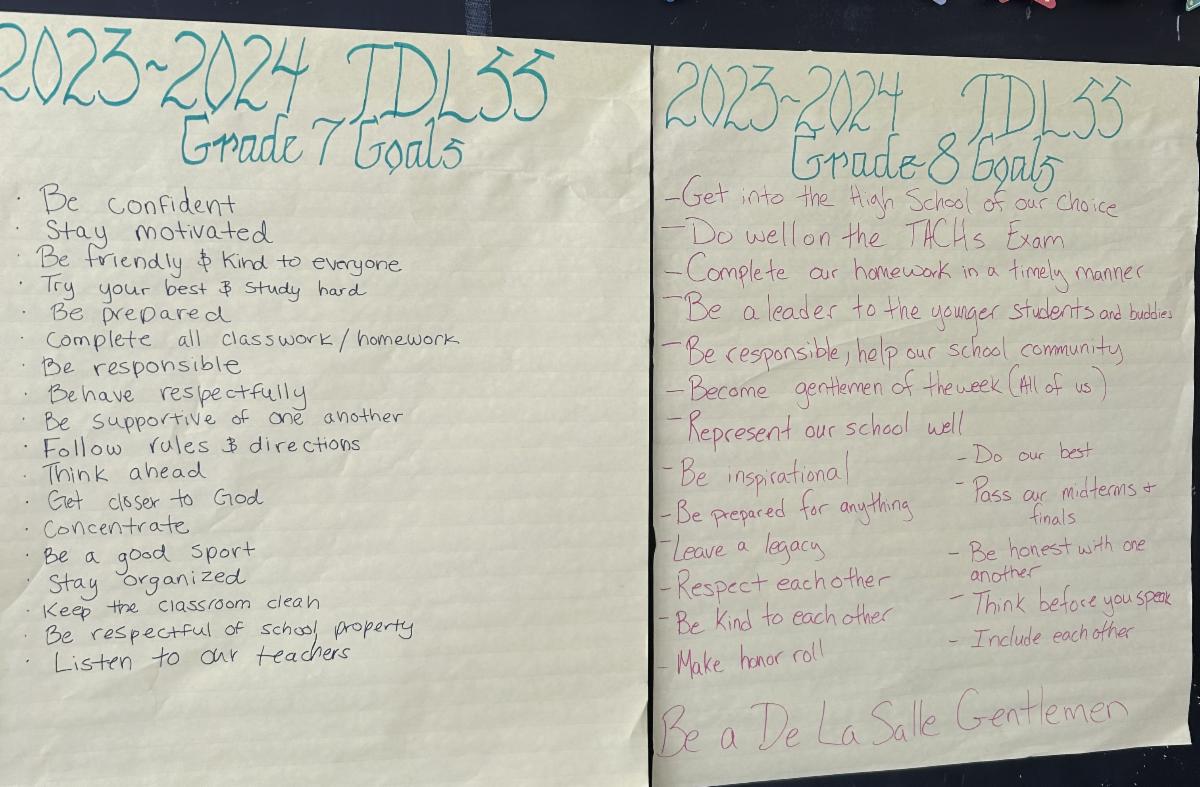 2023~2024 TDLSS
Grade 7 Goals
· Be confident
· Stay motivated
· Be friendly & Kind to everyone
· Try your best & Study hard
· Be prepared
· Complete all classwork/homework
· Be responsible
· Behave respectfully
· Be supportive of one another
· Follow rules & directions
· Think ahead
· Get closer to God
· Concentrate
· Be a good sport
· Stay organized
· Keep the classroom clean
· Be respectful of school property
· Listen to our teachers
2023~2024 TDLSS
Grade 8 Goals
- Get into the High School of our Choice
- Do well on the TACHs Exam
- Complete our homework in a timely manner
- Be a leader to the younger students and buddies
- Be responsible, help our school community
- Become gentlemen of the week (All of us)
- Represent our school well
- Be inspirational
- Be prepared for anything
- Leave a legacy
- Respect each other
- Be Kind to each other
- Make honor roll
- Do our best
- Pass our midterms +
finals
- Be honest with one
another
- Think before you speak
- Include each other
Be a De La Salle Gentlemen